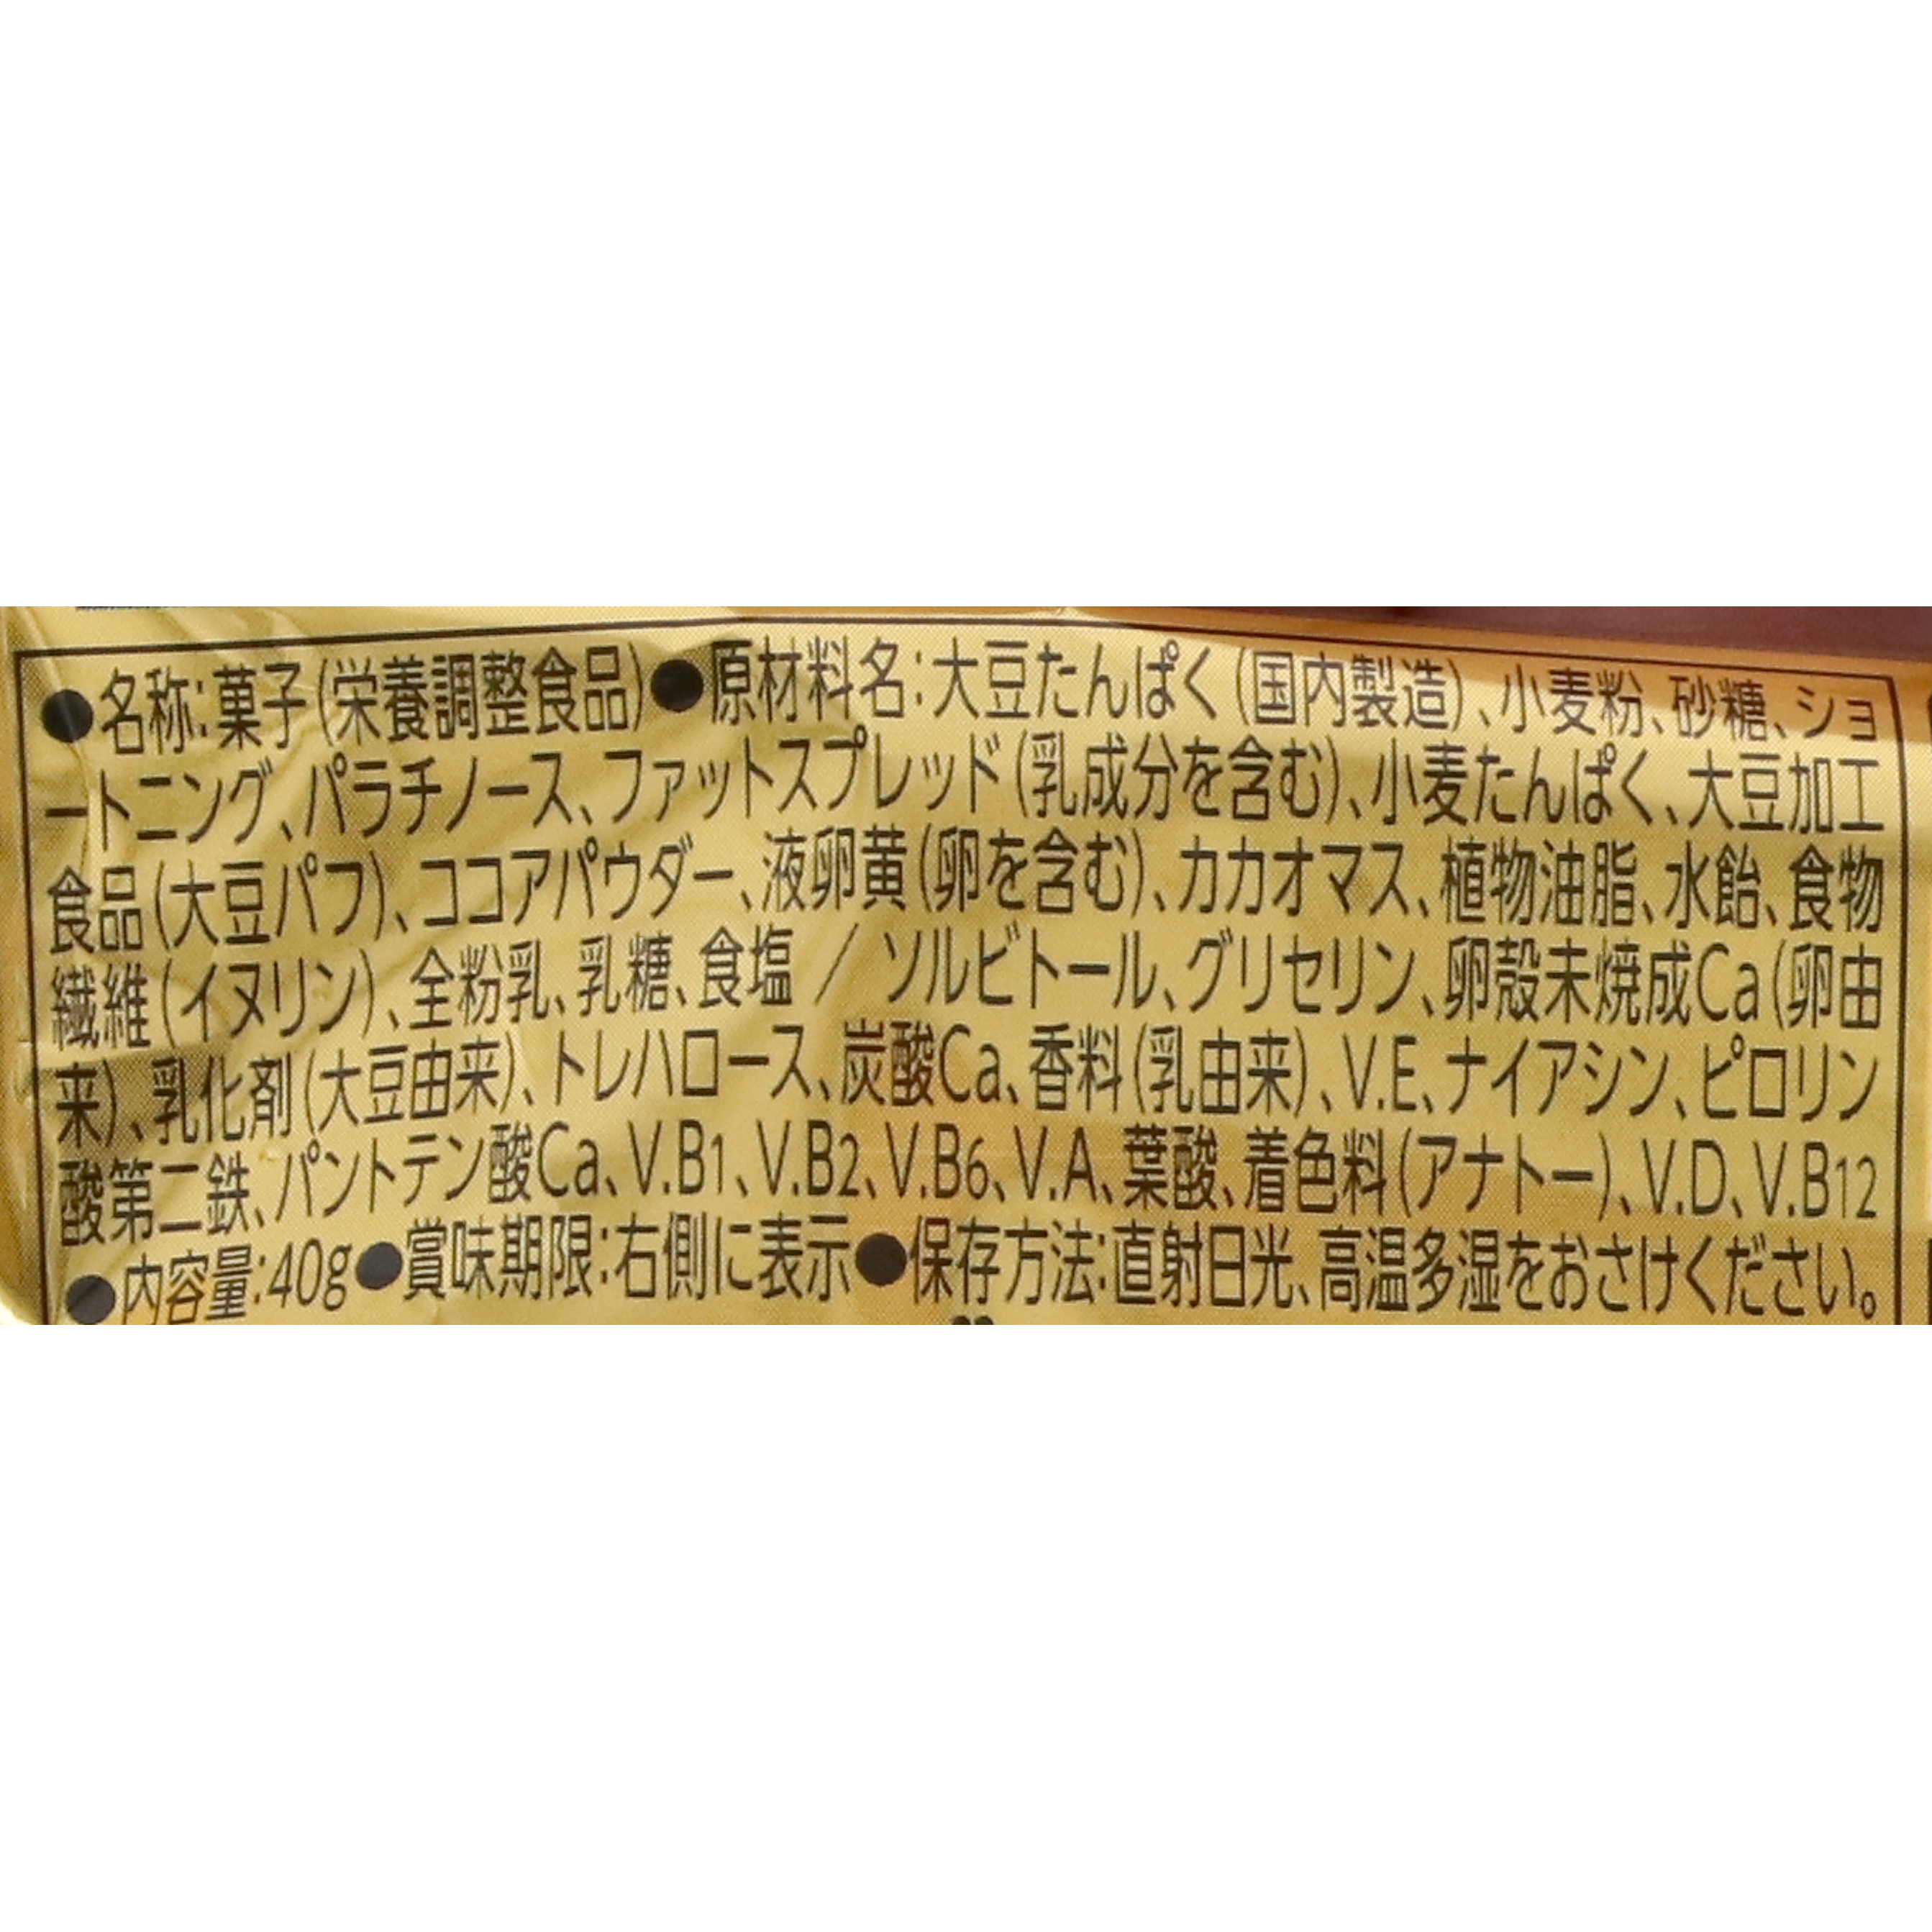 ●名称:菓子(栄養調整食品)●原材料名:大豆たんぱく(国内製造)、小麦粉、砂糖、ショ
ートニング、パラチノース、ファットスプレッド(乳成分を含む)、小麦たんぱく、大豆加工
食品(大豆パフ)、ココアパウダー、液卵黄(卵を含む)、カカオマス、植物油脂、水飴、食物
繊維(イヌリン)、全粉乳、乳糖、食塩／ソルビトール、グリセリン、卵殻未焼成Ca(卵由
来)、乳化剤(大豆由来)、トレハロース、炭酸Ca、香料(乳由来)、V.E、ナイアシン、ピロリン
酸第二鉄、パントテン酸Ca、V.B1、V.B2、V.B6、V.A、葉酸、着色料(アナトー)、V.D、V.B12
●内容量:40g●賞味期限:右側に表示●保存方法:直射日光、高温多湿をおさけください。